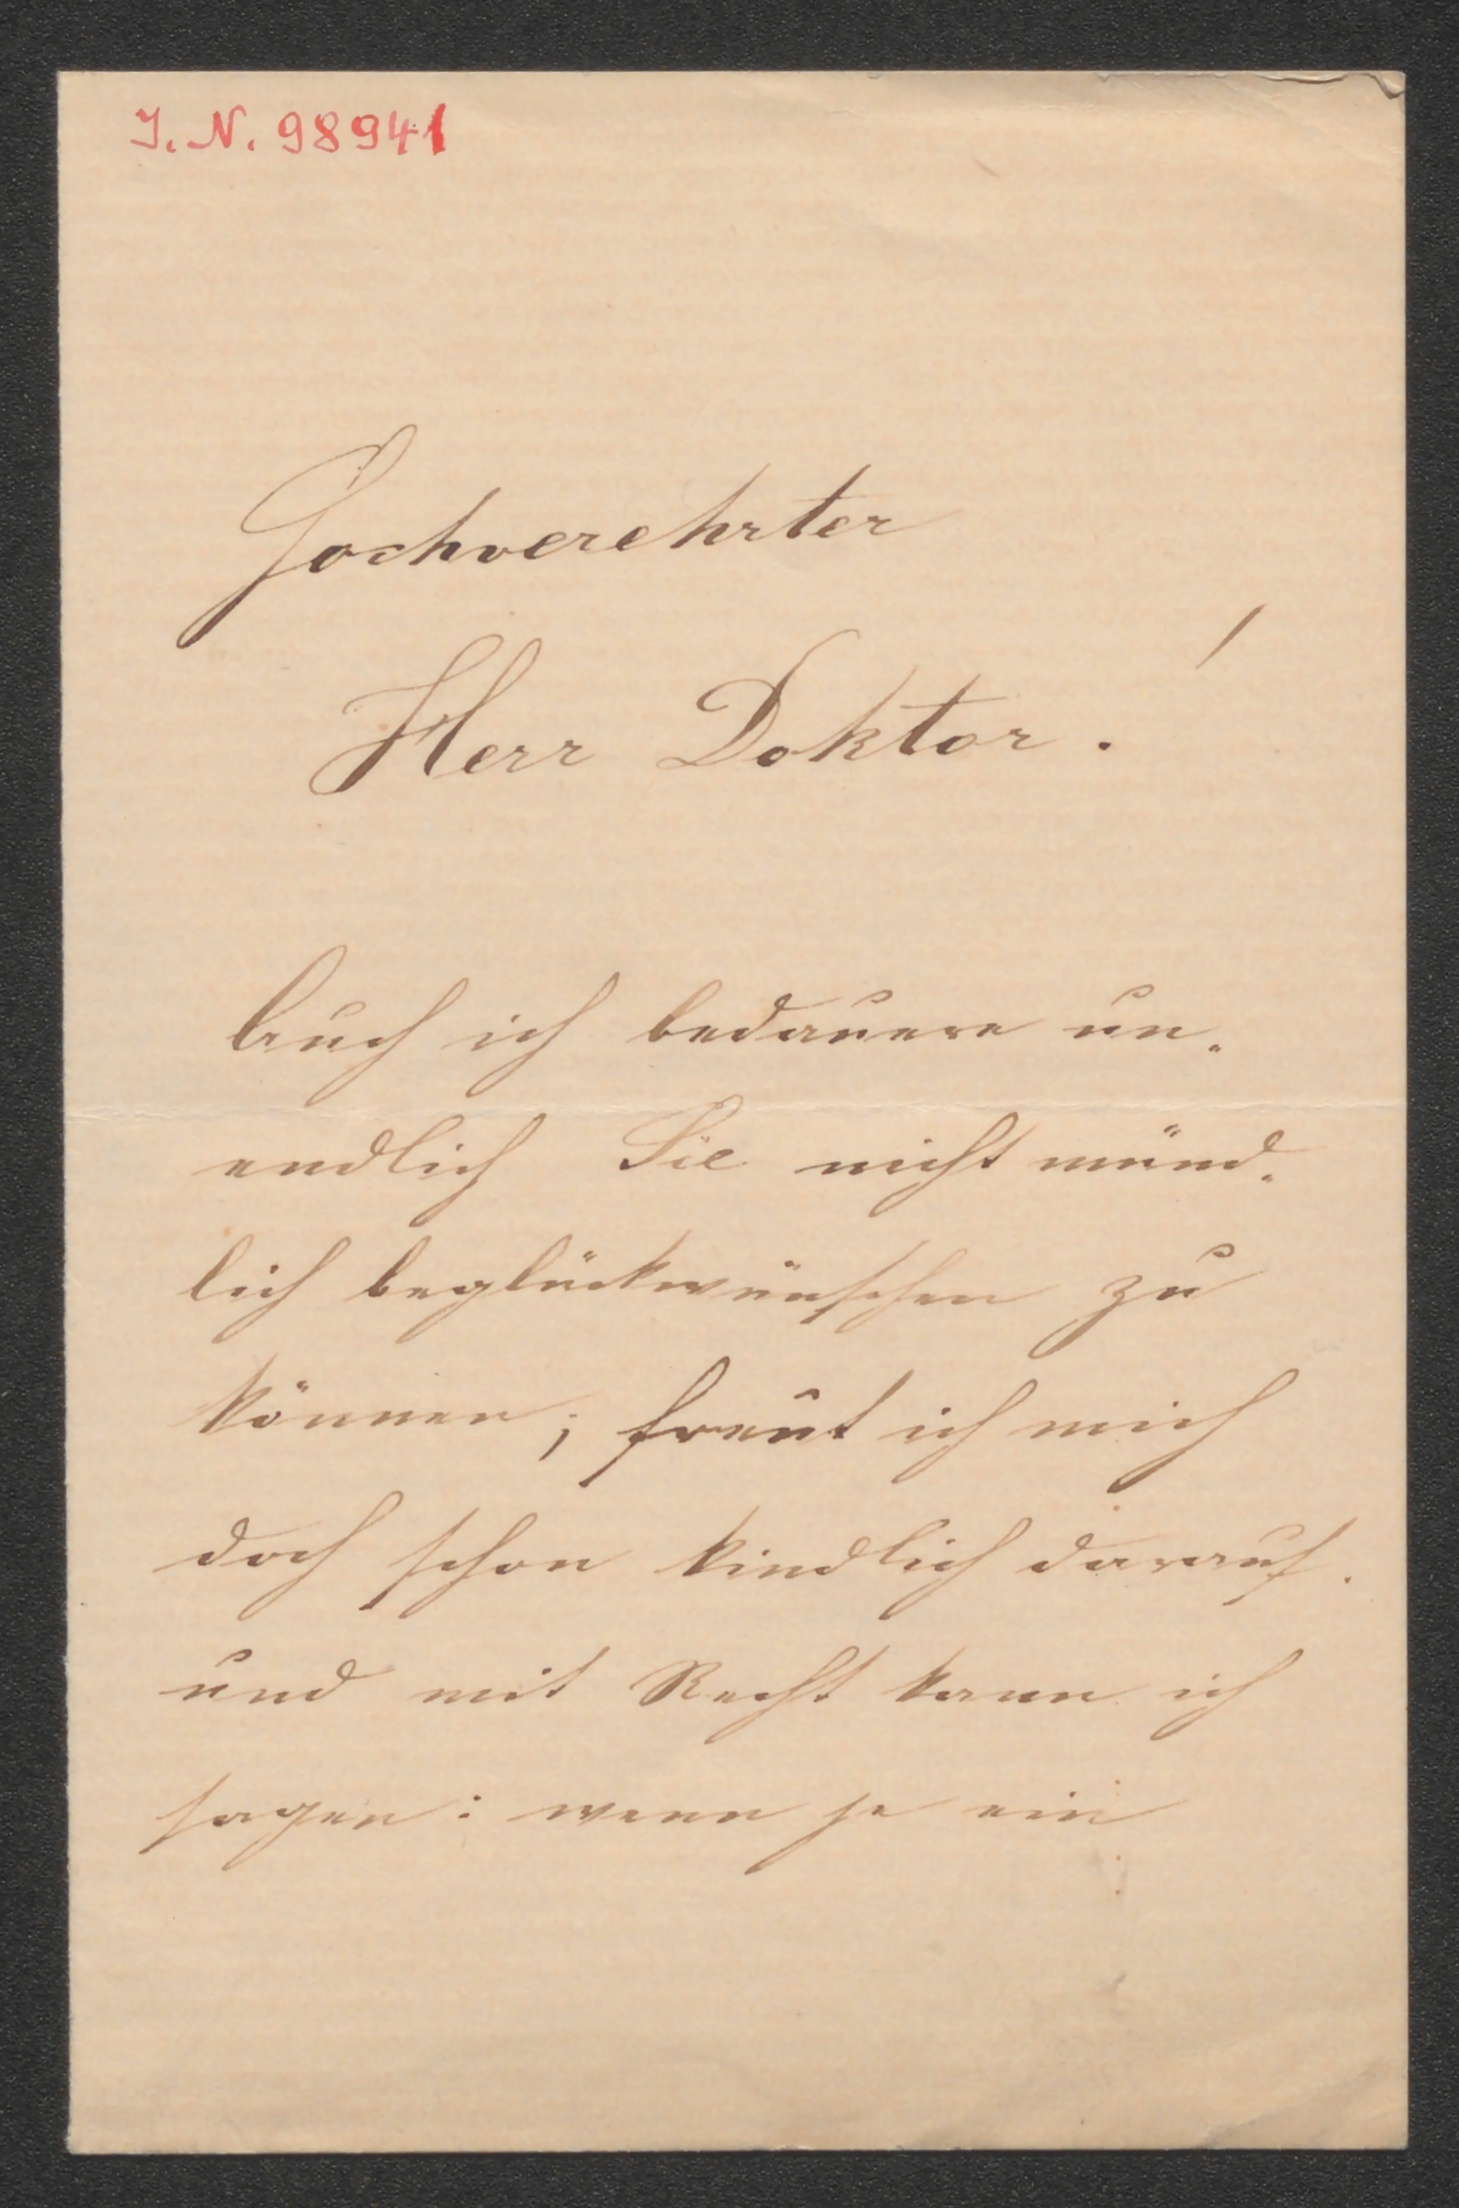 I. N. 98941
Hochverehrter
Herr Doktor!
Auch ich bedauere un-
endlich Sie nicht münd-
lich beglückwünschen zu
können; freut ich mich
doch schon kindlich darauf.
und mit Recht kann ich
sagen: wenn je ein